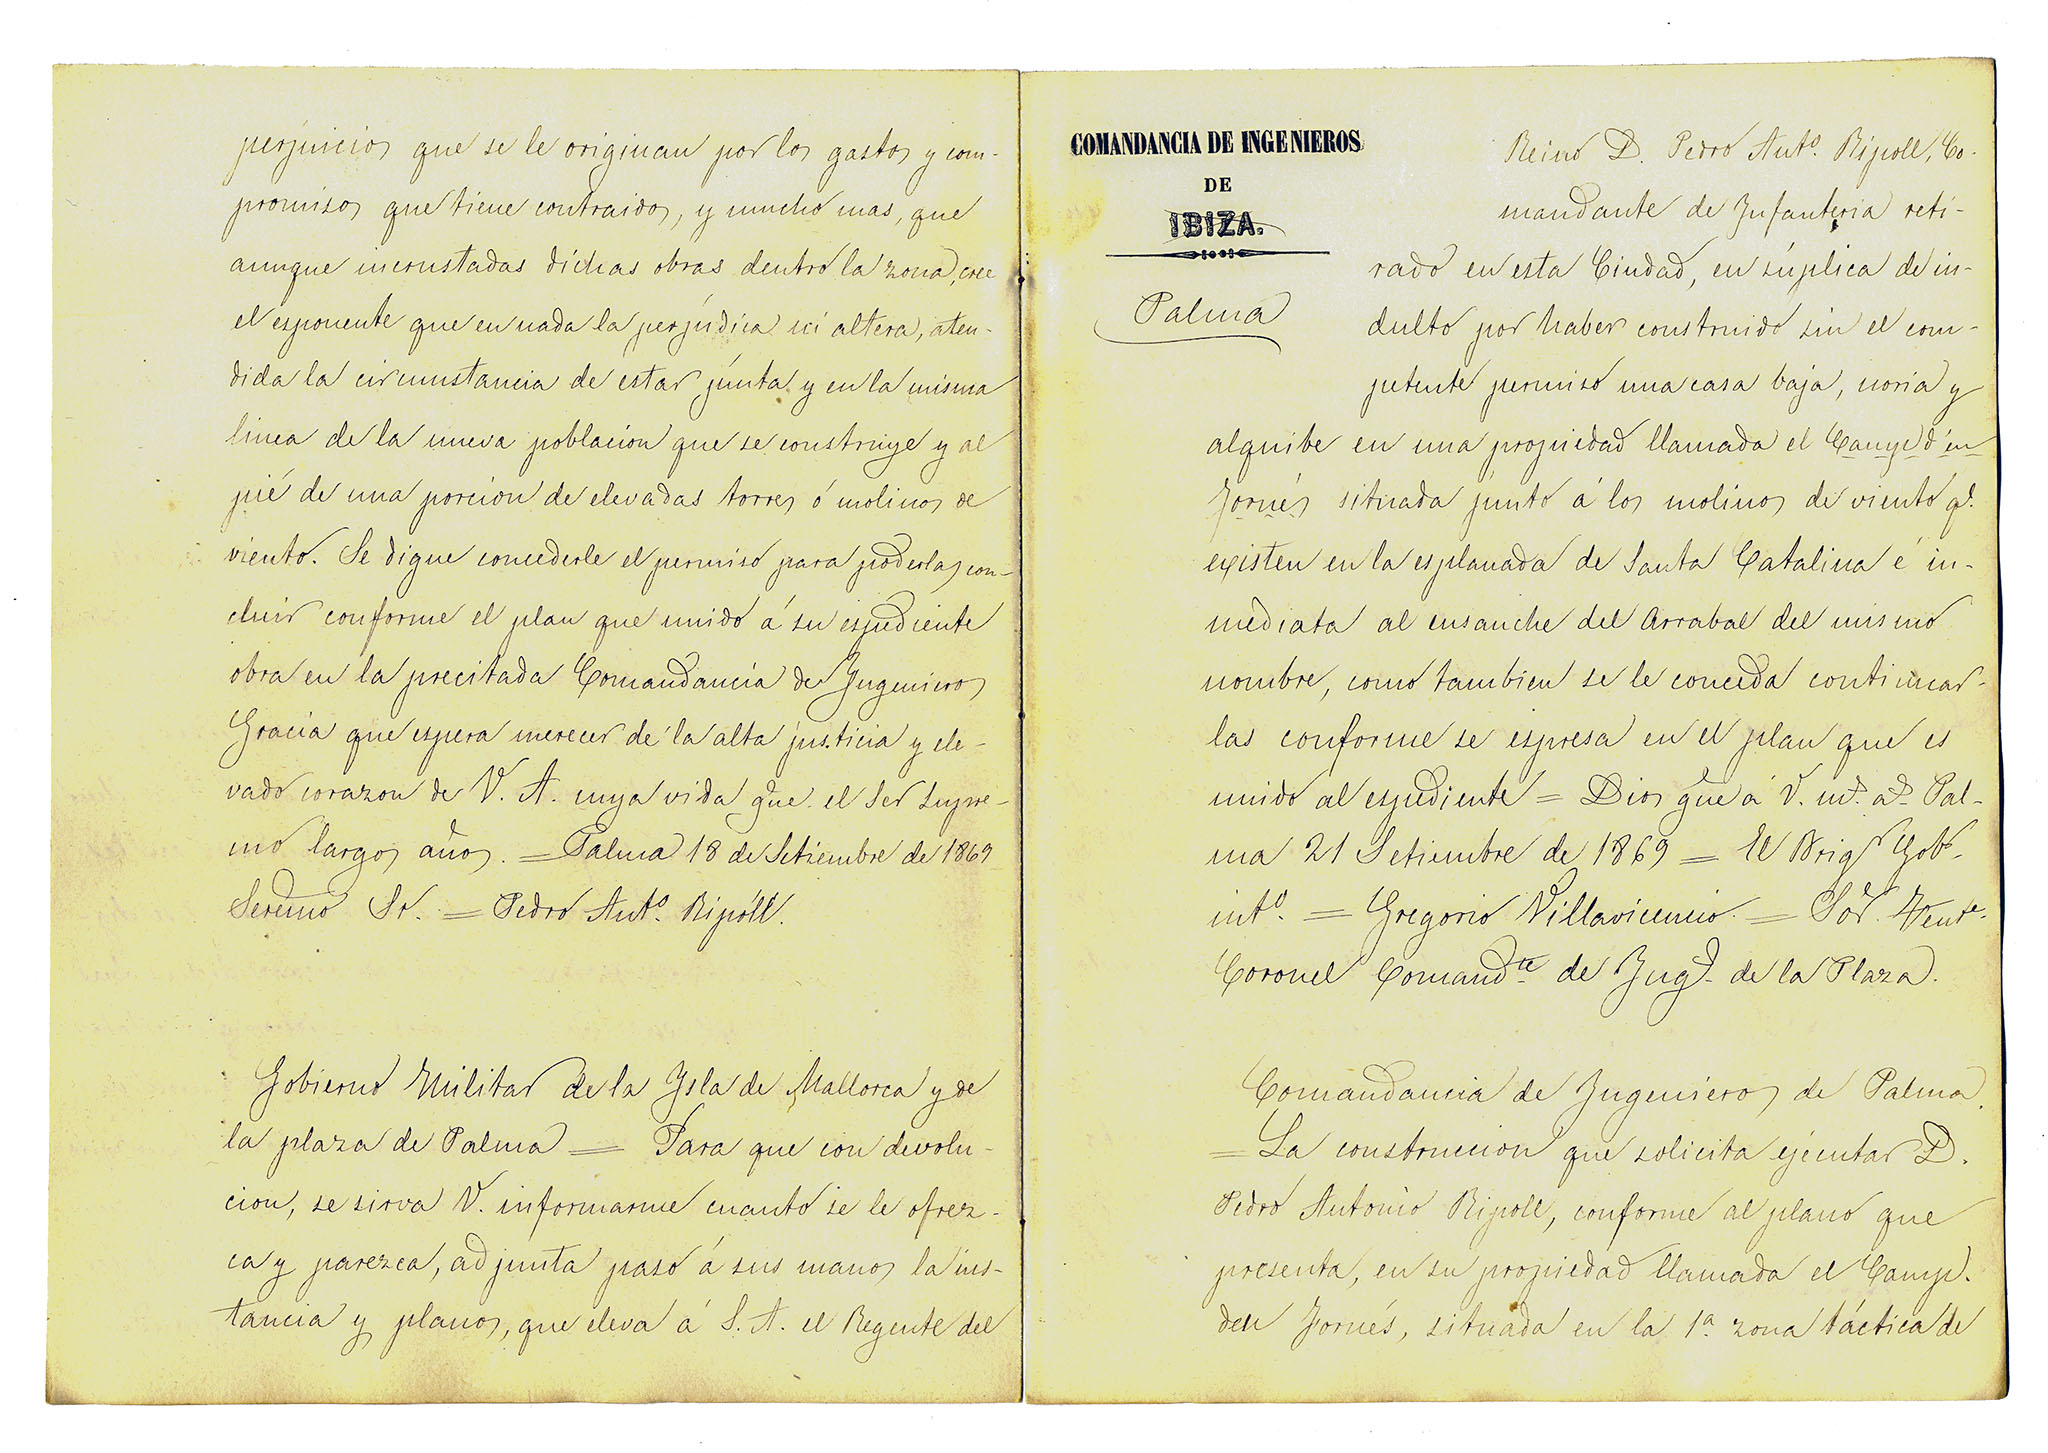 perjuicios que se le originan por los gastos y com-
promisos que tiene contraidos, y mucho mas, que
aunque incrustadas dichas obras dentro la zona, cree
el esponente que en nada la perjudica ni altera, aten-
dida la circunstancia de estar junta y en la misma
linea de la nueva poblacion que se construye y al
pié de una porcion de elevadas torres ó molinos de
viento. Se digne concederle el permiso para poderlas con-
cluir conforme el plan que unido á su espediente
obra en la precitada Comandancia de Ingenieros
Gracia que espera merecer de la alta justicia y ele-
vado corazon de V. A. cuya vida gue. el Ser Supre-
mo largos años. = Palma 18 de Setiembre de 1869
Sermo Sr. = Pedro Anto. Ripóll.
Gobierno Militar de la Ysla de Mallorca y de
la plaza de Palma = Para que con devolu-
cion, se sirva V. informarme cuanto se le ofrez-
ca y parezca, adjunta paso á sus manos la ins-
tancia y planos, que eleva á S. A. el Regente del
COMANDANCIA DE INGENIEROS
DE
IBIZA.
Palma
Reino D. Pedro Anto. Ripoll, Co-
mandante de Infanteria reti-
rado en esta Ciudad, en súplica de in-
dulto por haber construido sin el com-
petente permiso una casa baja, noria y
alquibe en una propiedad llamada el Camp d'en
Jornés situada junto á los molinos de viento q.
existen en la esplanada de Santa Catalina é in-
mediata al ensanche del Arrabal del mismo
nombre, como tambien se le conceda continuar-
las conforme se espresa en el plan que es
unido al espediente = Dios gue á V. ms. as. Pal-
ma 21 Setiembre de 1869 = El Brigr Gobr.
into. = Gregorio Villavicencio. = Sor. Tente.
Coronel Comandte de Ings. de la Plaza.
Comandancia de Ingenieros de Palma.
= La construccion que solicita ejecutar D.
Pedro Antonio Ripoll, conforme al plano que
presenta, en su propiedad llamada el Camp.
den Jornés, situada en la 1a. zona táctica de